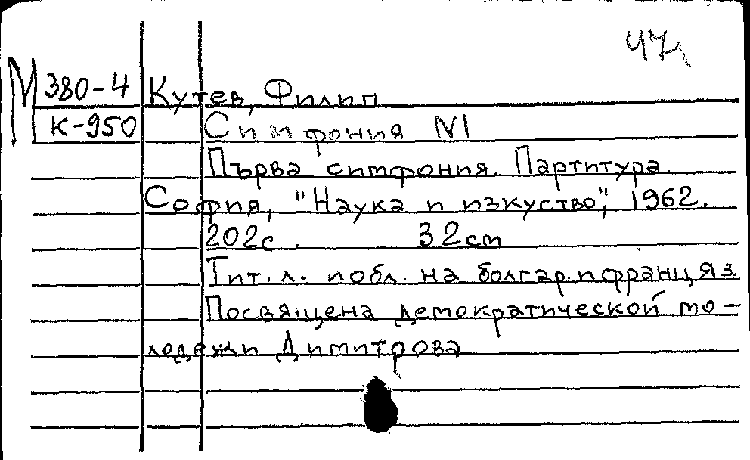 47
М 380-4 Кутев, Филип
К-950 Симфония N1
Първа симфония. Партитура.
София, "Наука и изкуство", 1962.
202с. 32cm
Тит. л. и обл. на болгар. и франц яз
Посвящена демократической мо-
лодежи Димитрова